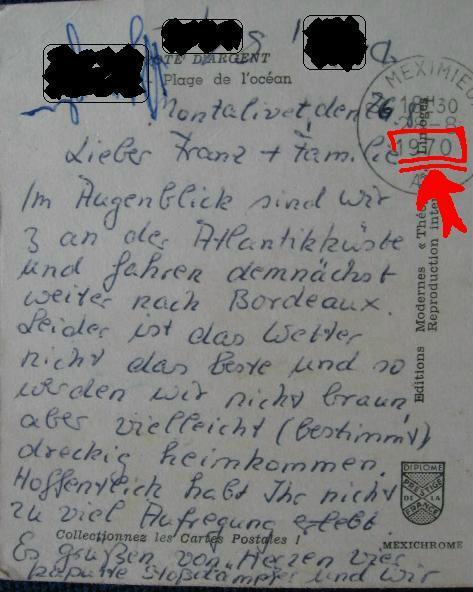 CÔTE D'ARGENT
Plage de l'océan
Montalivet, den 26.
MEXIMIEU
18H30
28-8
1970
A
Lieber Franz + Familie
Im Augenblick sind wir
3 an der Atlantikküste
und fahren demnächst
weiter nach Bordeaux.
Leider ist das Wetter
nicht das beste und so
werden wir nicht braun,
aber vielleicht (bestimmt)
dreckig heimkommen.
Hoffentlich habt Ihr nicht
zu viel Aufregung erlebt.
Collectionnez les Cartes Postales !
Es grüßen von Herzen vier
kaputte Stoßdämpfer und wir
Editions Modernes « Théo
Limoges
Reproduction inter
DIPLOME
PRESTIGE
DE LA
FRANCE
MEXICHROME